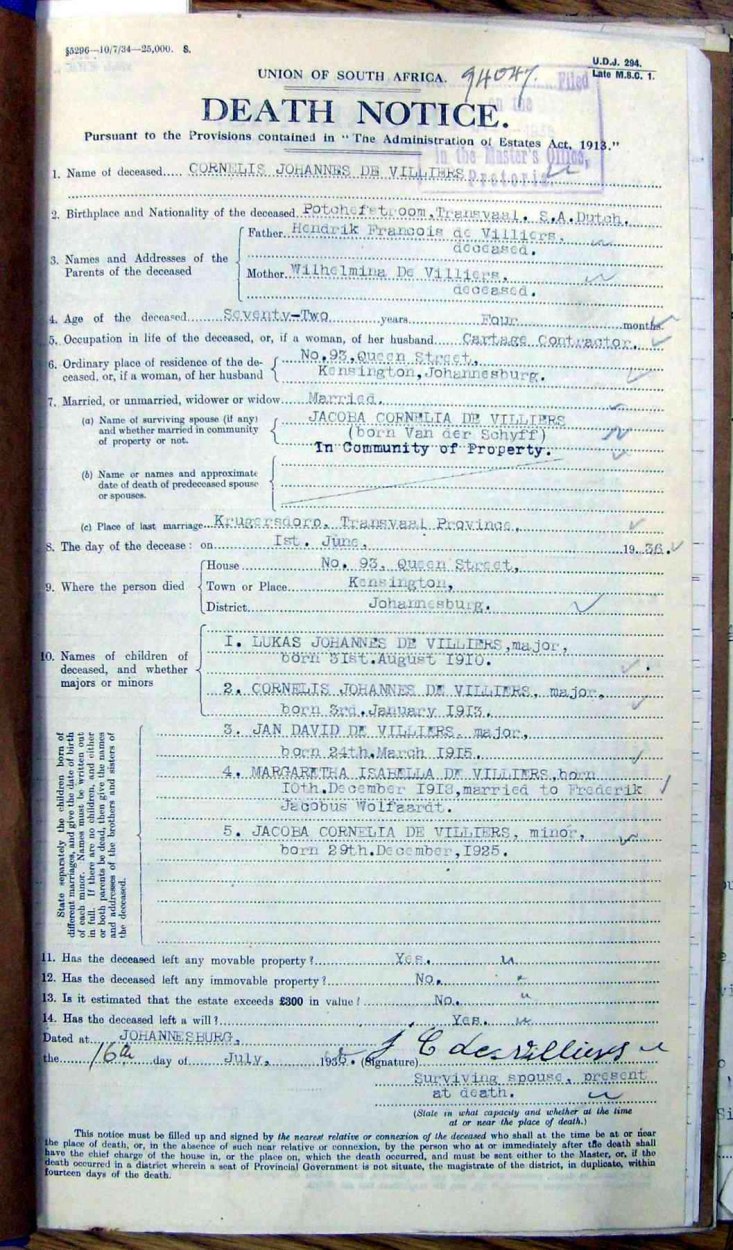 §5296—10/7/34—25,000. S.
U.D.J. 294.
Late M.S.C. 1.
UNION OF SOUTH AFRICA.
94047.
Filed
on the
In the Master's Office,
Pretoria.
DEATH NOTICE.
Pursuant to the Provisions contained in "The Administration of Estates Act, 1913."
1. Name of deceased CORNELIS JOHANNES DE VILLIERS
2. Birthplace and Nationality of the deceased Potchefstroom, Transvaal. S.A.Dutch.
3. Names and Addresses of the Parents of the deceased
Father Hendrik Francois de Villiers,
deceased.
Mother Wilhelmina De Villiers,
deceased.
4. Age of the deceased Seventy-Two years Four months.
5. Occupation in life of the deceased, or, if a woman, of her husband Cartage Contractor.
6. Ordinary place of residence of the de- No.93, Queen Street,
ceased, or, if a woman, of her husband Kensington, Johannesburg.
7. Married, or unmarried, widower or widow Married.
(a) Name of surviving spouse (if any) JACOBA CORNELIA DE VILLIERS
and whether married in community (born Van der Schyff)
of property or not. In Community of Property.
(b) Name or names and approximate
date of death of predeceased spouse
or spouses.
(c) Place of last marriage Krugersdorp, Transvaal Province,
8. The day of the decease : on Ist. June, 1936.
9. Where the person died
House No. 93, Queen Street,
Town or Place Kensington,
District Johannesburg.
10. Names of children of
deceased, and whether
majors or minors
I. LUKAS JOHANNES DE VILLIERS, major,
born 3Ist. August 1910.
2. CORNELIS JOHANNES DE VILLIERS, major,
born 3rd. January 1913.
State separately the children born of
different marriages, and give the date of birth
of each minor. Names must be written out
in full. If there are no children, and either
or both parents be dead, then give the names
and addresses of the brothers and sisters of
the deceased.
3. JAN DAVID DE VILLIERS, major,
born 24th. March 1915.
4. MARGARETHA ISABELLA DE VILLIERS, born
10th. December 1918, married to Frederik
Jacobus Wolfaardt.
5. JACOBA CORNELIA DE VILLIERS, minor,
born 29th. December, 1925.
11. Has the deceased left any movable property ? Yes.
12. Has the deceased left any immovable property ? No.
13. Is it estimated that the estate exceeds £300 in value ? No.
14. Has the deceased left a will ? Yes.
Dated at JOHANNESBURG,
the 16th day of July, 1936. (Signature) J C de Villiers
Surviving spouse, present
at death.
(State in what capacity and whether at the time
at or near the place of death.)
This notice must be filled up and signed by the nearest relative or connexion of the deceased who shall at the time be at or near
the place of death, or, in the absence of such near relative or connexion, by the person who at or immediately after the death shall
have the chief charge of the house in, or the place on, which the death occurred, and must be sent either to the Master, or, if the
death occurred in a district wherein a seat of Provincial Government is not situate, the magistrate of the district, in duplicate, within
fourteen days of the death.